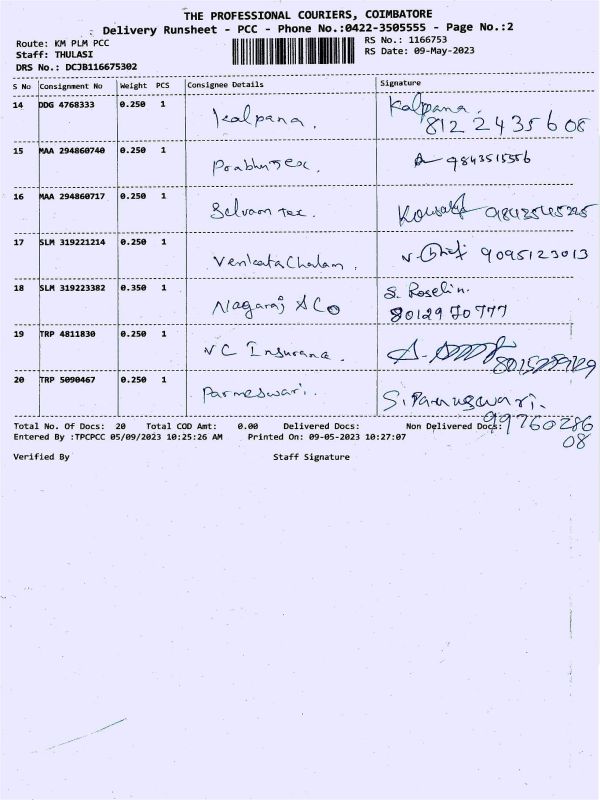 THE PROFESSIONAL COURIERS, COIMBATORE
Delivery Runsheet - PCC - Phone No.:0422-3505555 - Page No.:2
Route: KM PLM PCC
RS No.: 1166753
Staff: THULASI
RS Date: 09-May-2023
DRS No.: DCJB116675302
S No Consignment No Weight PCS Consignee Details Signature
14 DDG 4768333 0.250 1 Kalpana. Kalpana.
812 2435608
15 MAA 294860740 0.250 1 Prabhu Tex. 9843515556
16 MAA 294860717 0.250 1 Selvam Tex.
17 SLM 319221214 0.250 1 Venkatachalam. 9095123013
18 SLM 319223382 0.350 1 Nagaraj & Co S. Roselin.
8012970777
19 TRP 4811830 0.250 1 VC Insurance.
20 TRP 5090467 0.250 1 Parmeswari. S. Parmeswari.
Total No. Of Docs: 20 Total COD Amt: 0.00 Delivered Docs: Non Delivered Docs: 99760286
08
Entered By :TPCPCC 05/09/2023 10:25:26 AM Printed On: 09-05-2023 10:27:07
Verified By Staff Signature